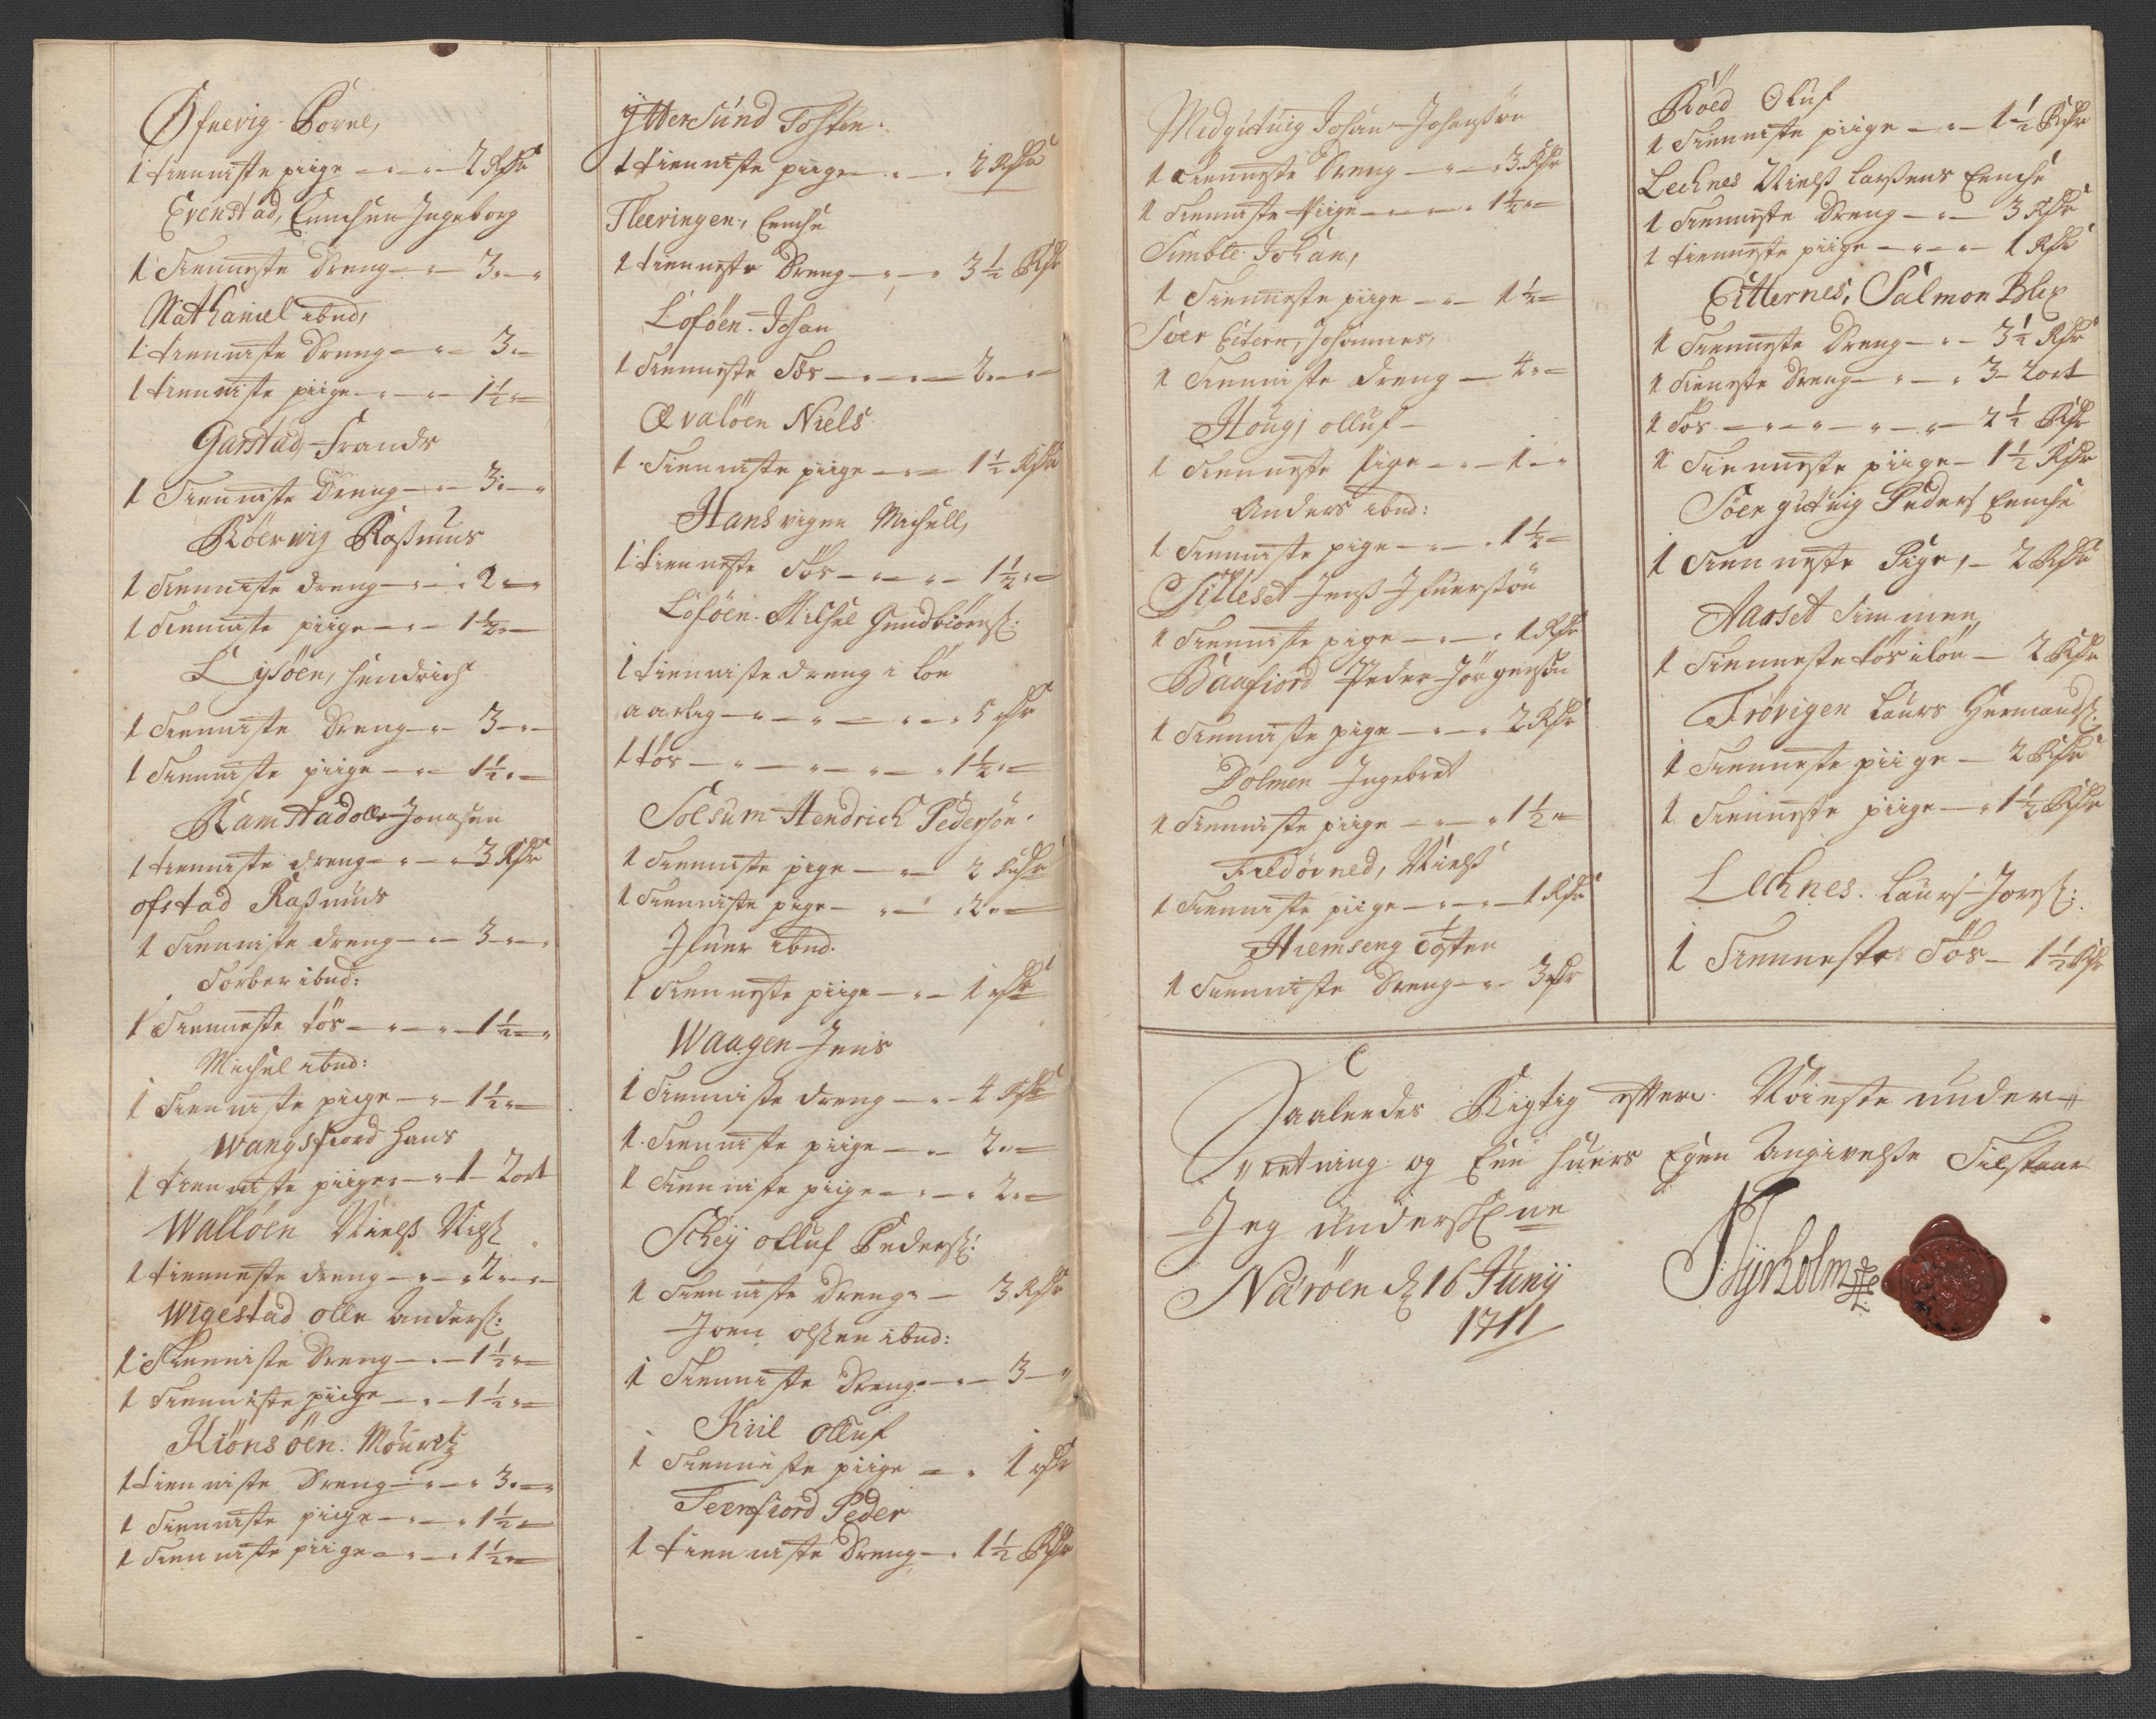 Øfuevig Povel,
1 tienniste piige — 2 Rdr
Evenstad, Enncken Ingeborg
1 Tienneste Dreng — 3 —
Nathaniel ibnd,
1 tienniste Dreng — 3 —
1 tienniste piige — 1½ —
Garstad Frands
1 Tienniste Dreng — 3 —
Röervig Rasmus
1 Tienniste dreng — 2 —
1 Tienniste piige — 1½ —
Lysöen, Hendrich
1 Tienniste Dreng — 3 —
1 Tienniste piige — 1½ —
Ramstad olle Jonasen
1 tienniste dreng — 3 Rdr
ofstad Rasmus
1 Tienniste dreng — 3 —
Torber ibnd:
1 Tienneste tös — 1½ —
Michel ibnd:
1 Tienniste piige — 1½ —
Wangsfiord Hans
1 tienniste piige — 1 — 2 ort
Wallöen Niels Nils:
1 tienneste dreng — 2 —
Wigestad olle Anders:
1 Tienniste Dreng — 1½ —
1 Tienniste piige — 1½ —
Kiönsöen Mouritz
1 tienniste Dreng — 3 —
1 Tienniste piige — 1½ —
1 Tienniste piige — 1½ —
Yttersund Tosten
1 tienniste piige — 2 Rdr
Fleeringen, Encke
1 tienneste Dreng — 3½ Rdr
Loföen Johan
1 Tienneste Tös — 2 —
Qvalöen Niels
1 Tienniste piige — 1½ Rdr
Hansvigen Michell,
1 tienneste Tös — 1½ —
Loföen Michel Gundbiörns:
1 tienniste dreng i lön
aarlig — 5 rdr
1 tös — 1½ —
Solsum Hendrich Pedersön
1 Tienniste pige — 2 Rdr
1 Tienniste pige — 2 —
Ifuer ibnd.
1 Tienneste piige — 1 rdr
Waagen Jens
1 Tienniste dreng — 4 Rdr
1 Tienniste piige — 2 —
1 Tienniste piige — 2 —
Schey olluf Peders:
1 Tienniste Dreng — 3 Rdr
Joen olsen ibnd:
1 Tienniste Dreng — 3 —
Kiil olluf
1 Tienniste piige — 1 rdr
Teernfiord Peder
1 tienniste Dreng — 1½ Rdr
Medgutvig Johan Johansön
1 Tienneste Dreng — 3 Rdr
1 Tienniste Piige — 1½ —
Simble Johan,
1 Tienneste piige — 1½ —
Söer Eitern, Johannes,
1 Tienniste dreng — 4 —
Houg, olluf
1 Tienneste Pige — 1 —
Anders ibnd:
1 Tienniste pige — 1½ —
Silleset Jens Ifuersön
1 Tienniste pige — 1 Rdr
Baafiord Peder Jörgensön
1 Tienniste pige — 2 Rdr
Dolmen Ingebret
1 Tienniste piige — 1½ —
Fieldörned, Niels
1 Tienniste piige — 1 Rdr
Hiemseng Tosten
1 Tienniste Dreng — 3 rdr
Röed Oluf
1 Tienniste piige — 1½ Rdr
Lechnes Niels Larsens Encke
1 Tienniste Dreng — 3 Rdr
1 tienneste piige — 1 Rdr
Eitternes, Salmon Blix
1 Tienneste Dreng — 3½ Rdr
1 Tieneste Dreng — 3 — 2 ort
1 Tös — 2½ Rdr
1 Tienneste piige — 1½ Rdr
Söer gutvig Peders Encke
1 Tienneste Pige, — 2 Rdr
Aarset Simmen
1 Tienneste tös i lön — 2 Rdr
Trövigen Laurs Hermands:
1 Tienneste piige — 2 Rdr
1 Tienneste piige — 1½ Rdr
Lechnes Laurs Jors:
1 Tienneste Tös — 1½ Rdr
Saaleedes Rigtig efter Nöieste under-
retning og Een huers Egen Angivelse Tilstaar
Jeg Underskne
Næröen d 16 Junij
1711
Hyrholm